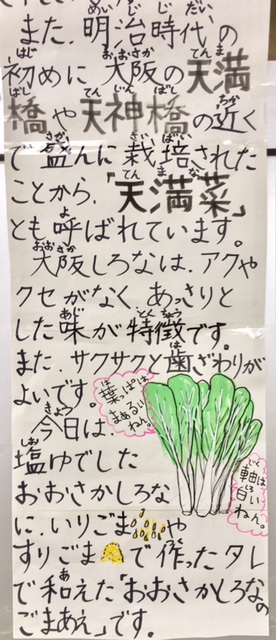 また、明治時代の
初めに大阪の天満
橋や天神橋の近く
で盛んに栽培された
ことから、「天満菜」
とも呼ばれています。
大阪しろなは、アクや
クセがなく あっさりと
した味が特徴です。
また、サクサクと歯ざわりが
よいです。
葉っぱは
まぁるい
ねん。
今日は、
塩ゆでした
おおさかしろな
軸は
白い
ねん。
に、いりごまや
すりごまで作ったタレ
で和えた「おおさかしろなの
ごまあえ」です。